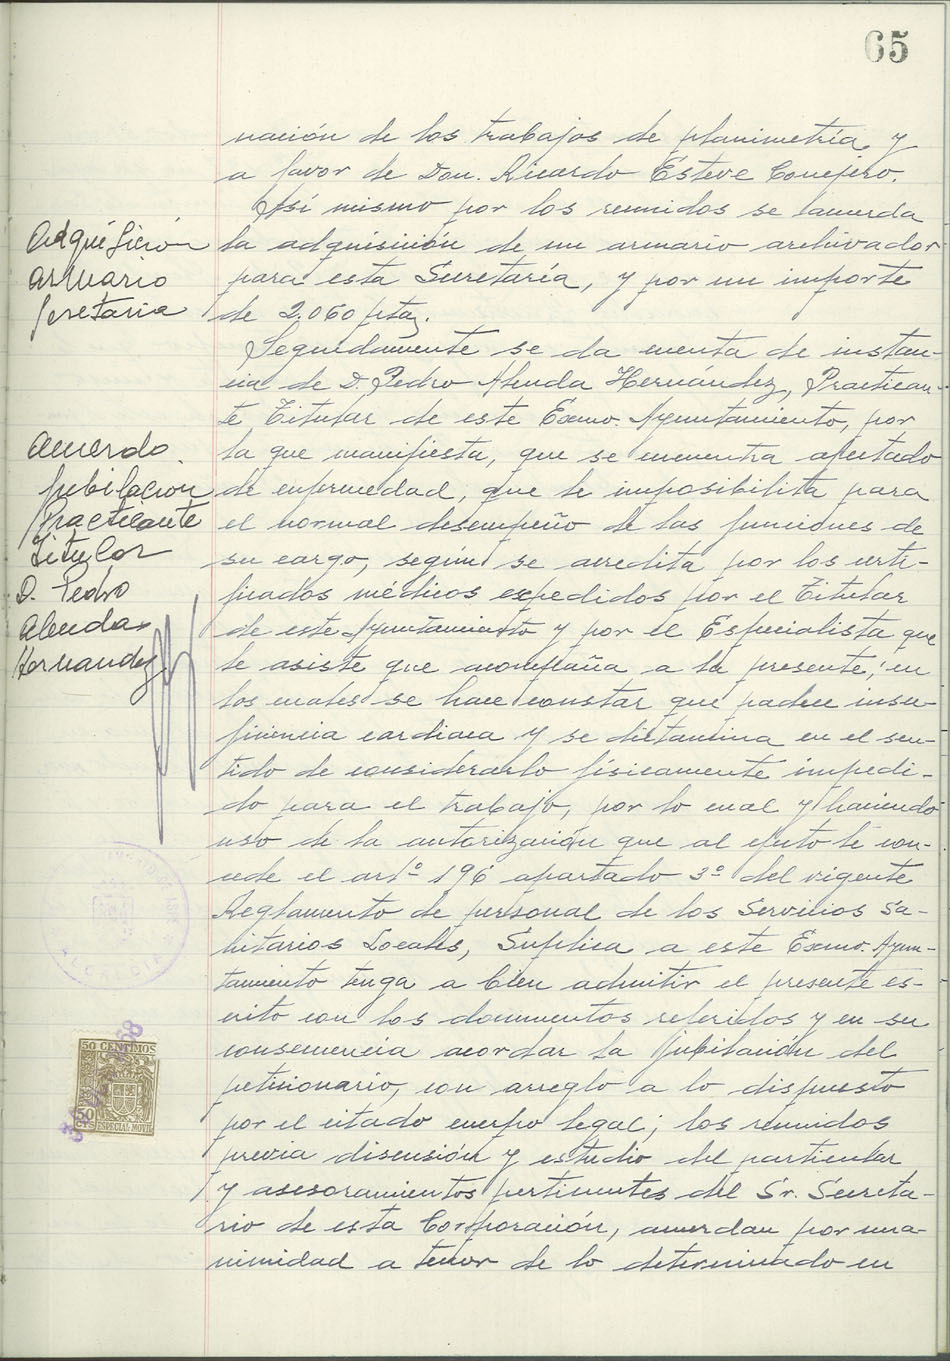 65
nación de los trabajos de planimetría y
a favor de Don. Ricardo Esteve Conejero.
Así mismo por los reunidos se acuerda
la adquisición de un armario archivador
para esta Secretaría, y por un importe
de 2.060 ptas.
Adquisición
armario
Secretaria
Seguidamente se da cuenta de instan-
cia de D. Pedro Abenda Hernández, Practican-
te Titular de este Excmo. Ayuntamiento, por
la que manifiesta, que se encuentra afectado
de enfermedad, que le imposibilita para
el normal desempeño de las funciones de
su cargo, según se acredita por los certi-
ficados médicos expedidos por el Titular
de este Ayuntamiento y por el Especialista que
le asiste que acompaña a la presente, en
los cuales se hace constar que padece insu-
ficiencia cardiaca y se dictamina en el sen-
tido de considerarlo físicamente impedi-
do para el trabajo, por lo cual y haciendo
uso de la autorización que al efecto le con-
cede el artº 196 apartado 3º del vigente
Reglamento de personal de los Servicios Sa-
nitarios Locales, Suplica a este Excmo. Ayun-
tamiento tenga a bien admitir el presente es-
crito con los documentos referidos y en su
consecuencia acordar la jubilación del
peticionario, con arreglo a lo dispuesto
por el citado cuerpo legal; los reunidos
previa discusión y estudio del particular
y asesoramientos pertinentes del Sr. Secreta-
rio de esta Corporación, acuerdan por una-
nimidad a tenor de lo determinado en
Acuerdo
jubilacion
Practicante
Titular
D. Pedro
Abenda
Hernandez
ALCALDIA
50 CENTIMOS
50
CTS
ESPECIAL MOVIL